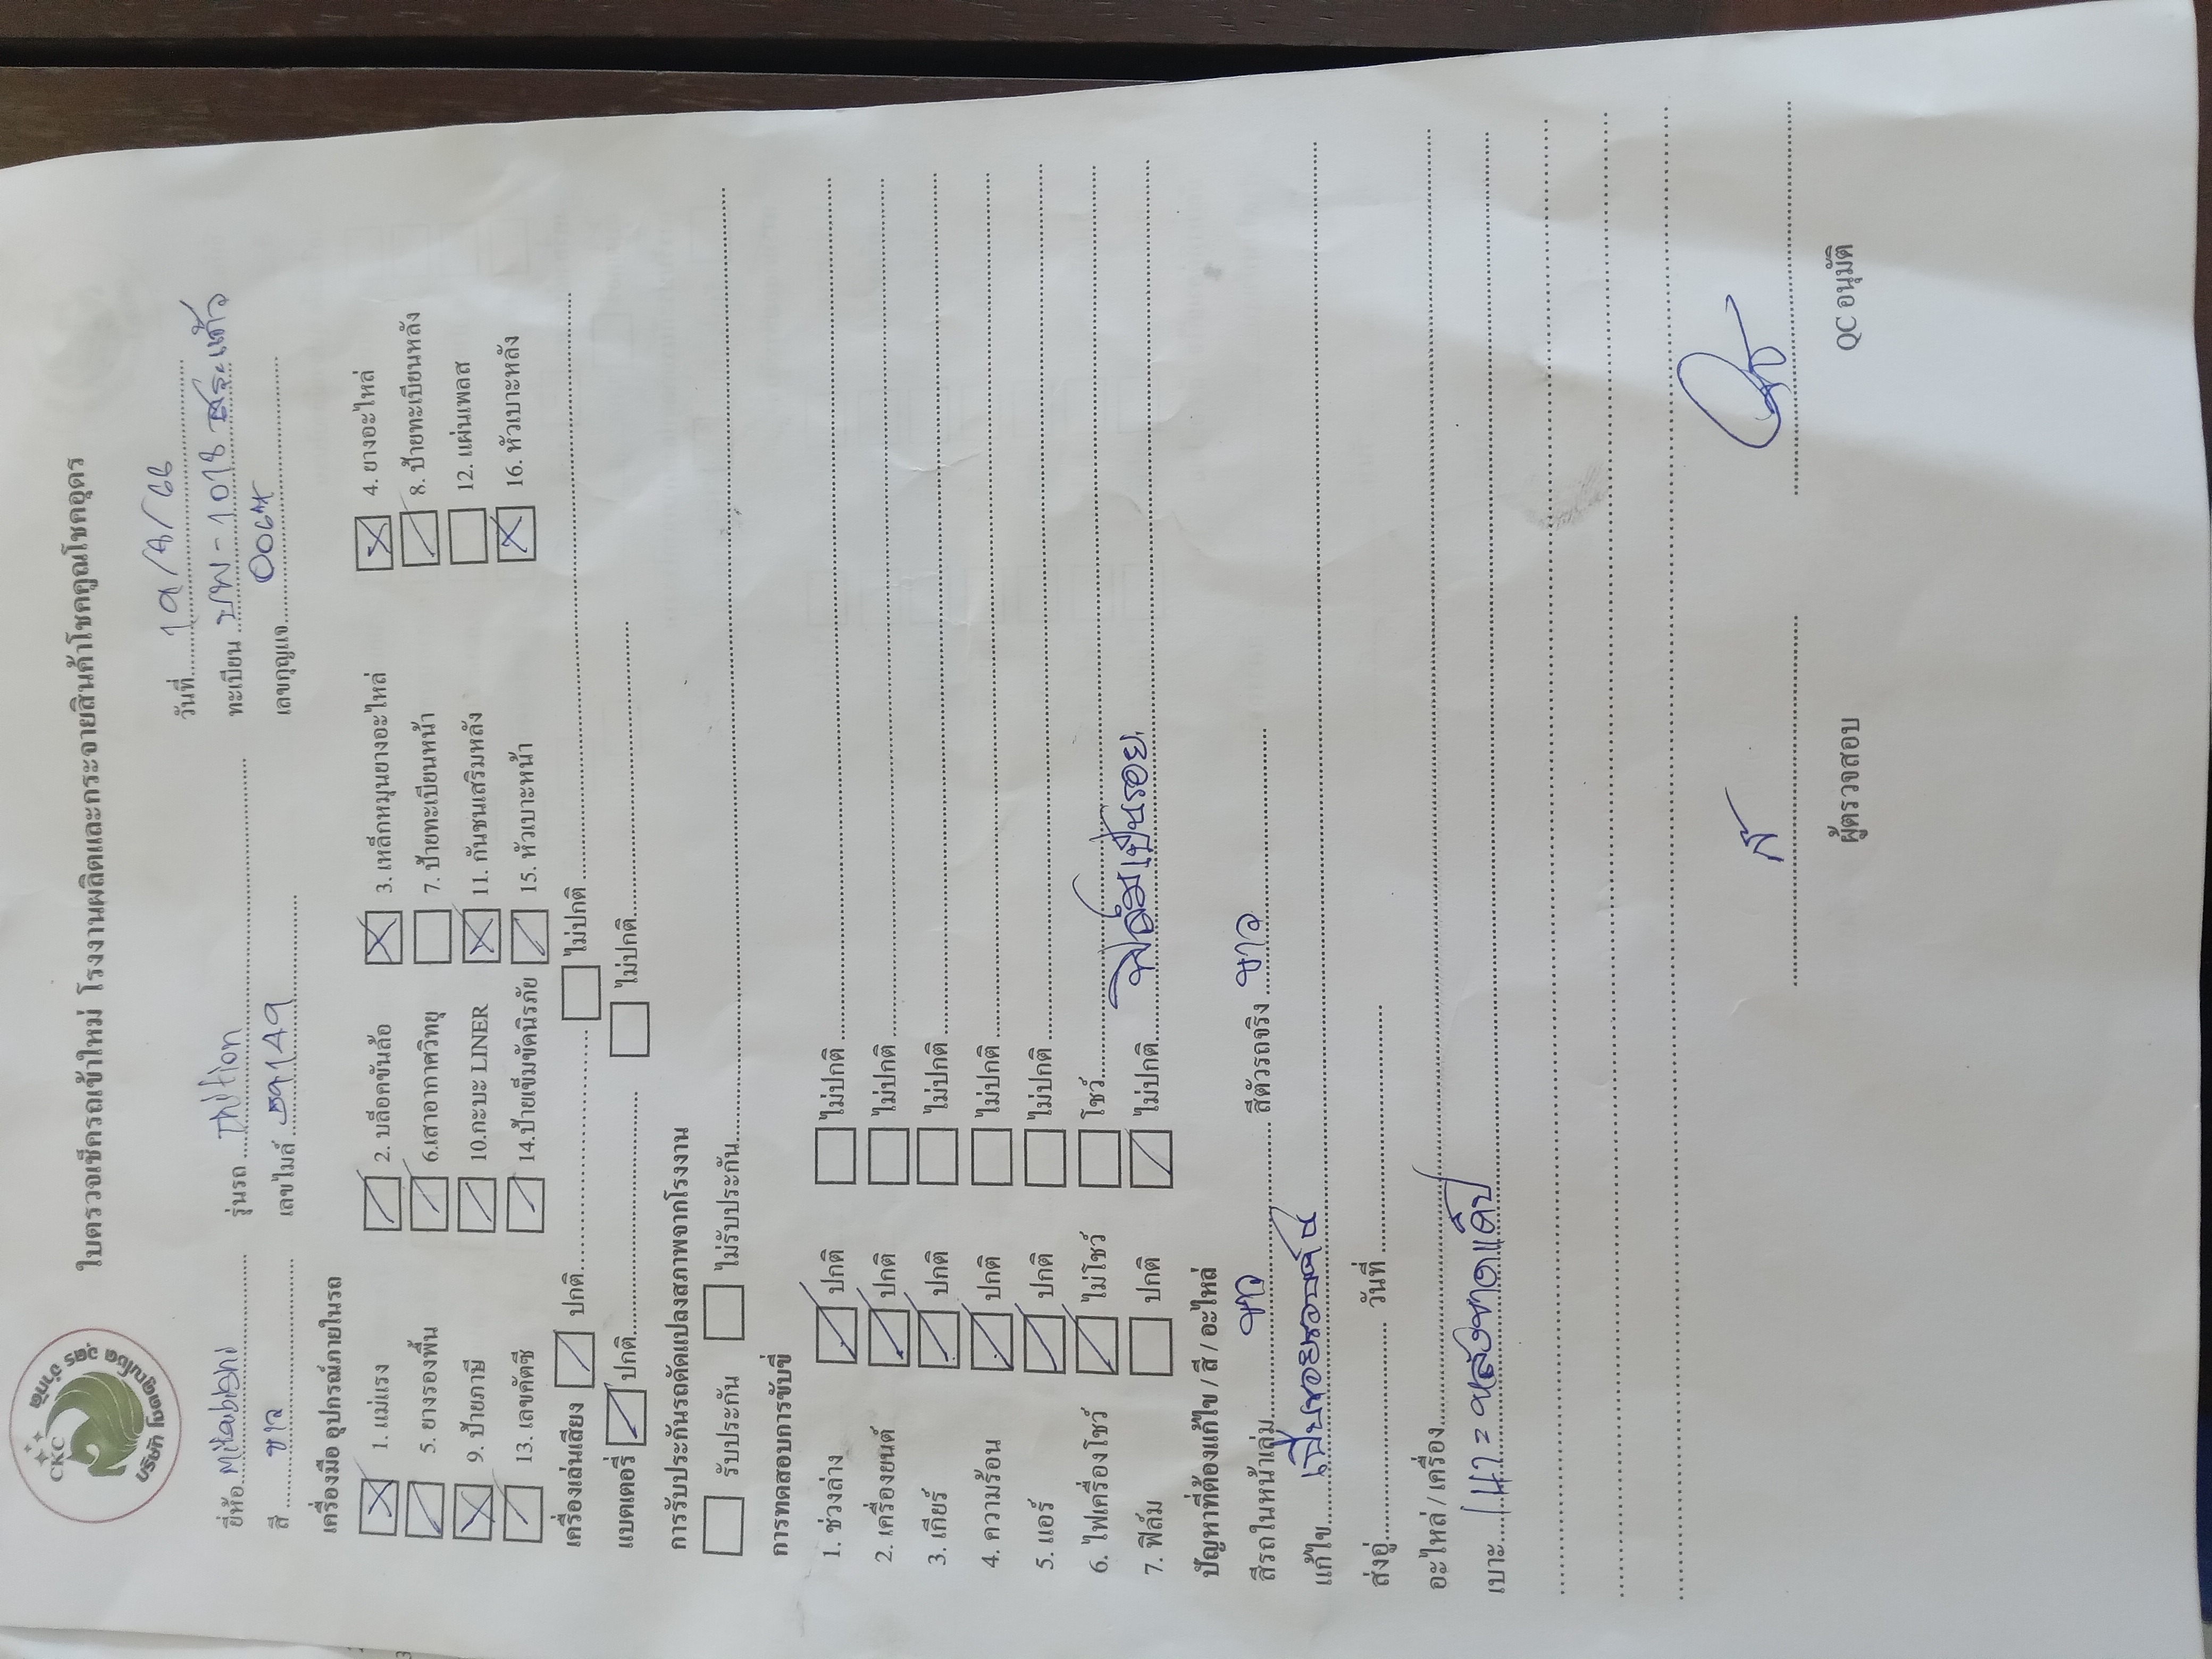 CKC
บริษัท โชคคูณโชค อุดร จำกัด
ใบตรวจเช็ครถเข้าใหม่ โรงงานผลิตและกระจายสินค้าโชคคูณโชคอุดร
วันที่
ยี่ห้อ รุ่นรถ Thifion ทะเบียน
สี ขาว เลขไมล์ เลขกุญแจ
เครื่องมือ อุปกรณ์ภายในรถ
1. แม่แรง 2. บล็อกขันล้อ 3. เหล็กหมุนยางอะไหล่ 4. ยางอะไหล่
5. ยางรองพื้น 6.เสาอากาศวิทยุ 7. ป้ายทะเบียนหน้า 8. ป้ายทะเบียนหลัง
9. ป้ายภาษี 10.กะบะ LINER 11. กันชนเสริมหลัง 12. แผ่นเพลส
13. เลขคัตซี 14.ป้ายเข็มขัดนิรภัย 15. หัวเบาะหน้า 16. หัวเบาะหลัง
เครื่องเล่นเสียง ปกติ ไม่ปกติ
แบตเตอรี่ ปกติ ไม่ปกติ
การรับประกันรถดัดแปลงสภาพจากโรงงาน
รับประกัน ไม่รับประกัน
การทดสอบการขับขี่
1. ช่วงล่าง ปกติ ไม่ปกติ
2. เครื่องยนต์ ปกติ ไม่ปกติ
3. เกียร์ ปกติ ไม่ปกติ
4. ความร้อน ปกติ ไม่ปกติ
5. แอร์ ปกติ ไม่ปกติ
6. ไฟเครื่องโชว์ ไม่โชว์ โชว์
7. ฟิล์ม ปกติ ไม่ปกติ ฟิล์มเป็นรอย
ปัญหาที่ต้องแก้ไข / สี / อะไหล่
สีรถในหน้าเล่ม ขาว สีตัวรถจริง ขาว
แก้ไข
ส่งอู่ วันที่
อะไหล่ / เครื่อง
เบาะ
ผู้ตรวจสอบ QC อนุมัติ